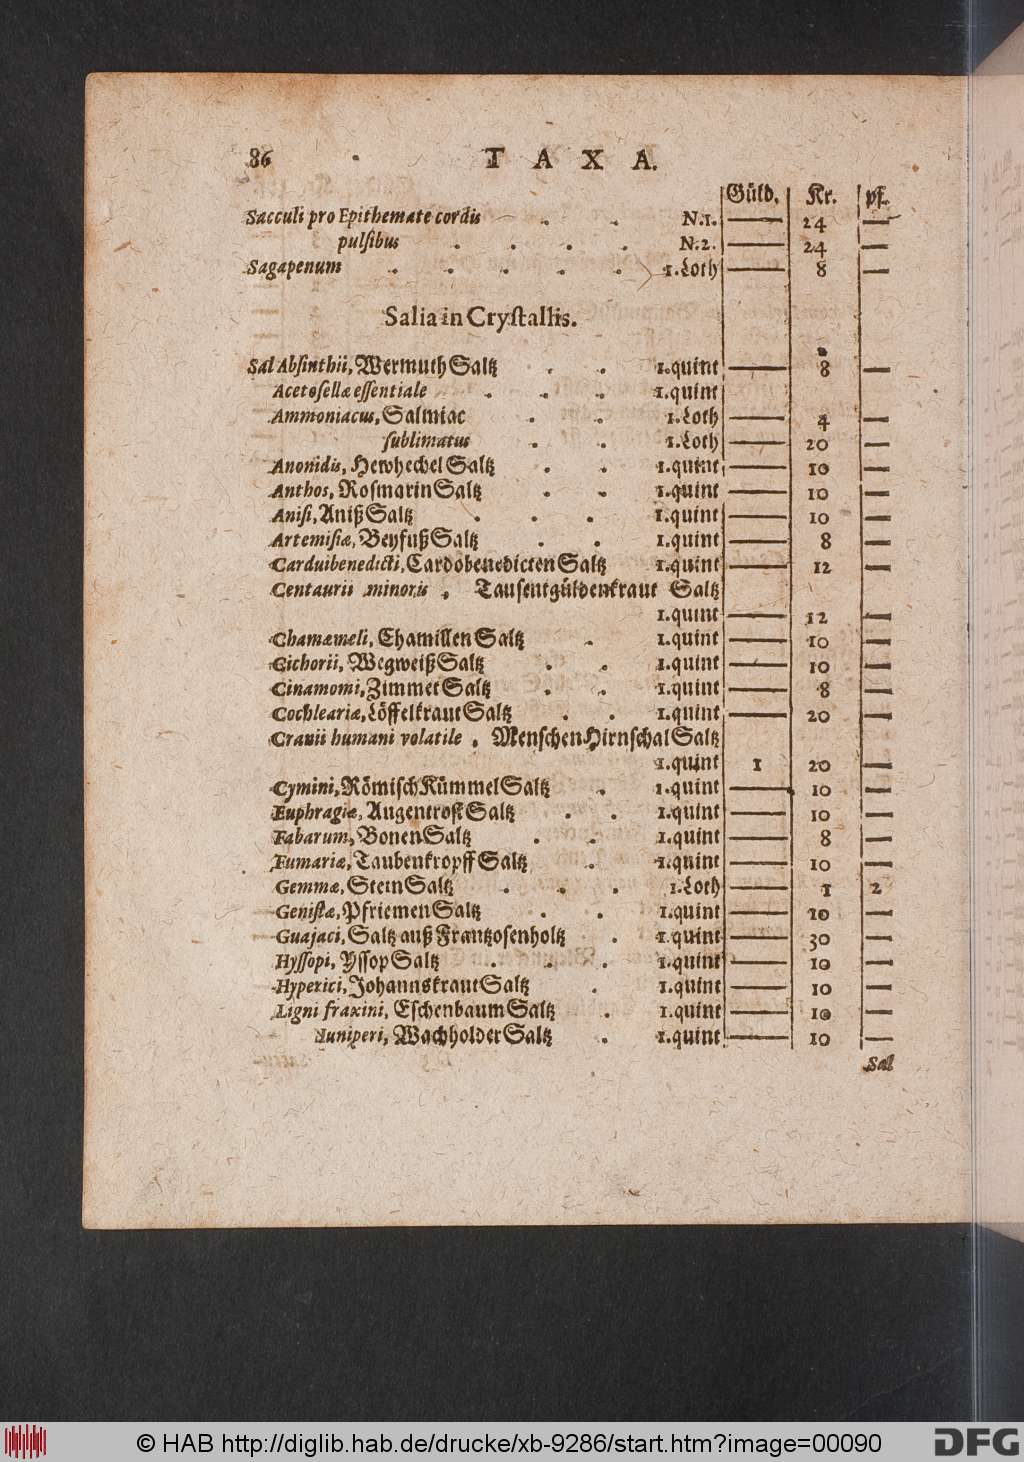 86 TAXA.
Güld. Kr. pf.
Sacculi pro Epithemate cordis . . N.1. — 24 —
pulsibus . . . . N.2. — 24 —
Sagapenum . . . . . 1.Loth — 8 —
Salia in Crystallis.
Sal Absinthii, Wermuth Saltz . . 1.quint — 8 —
Acetosellæ essentiale . . . 1.quint
Ammoniacus, Salmiac . . 1.Loth — 4 —
sublimatus . . 1.Loth — 20 —
Anonidis, Hewhechel Saltz . . 1.quint — 10 —
Anthos, Rosmarin Saltz . . 1.quint — 10 —
Anisi, Aniß Saltz . . . 1.quint — 10 —
Artemisiæ, Beyfuß Saltz . . 1.quint — 8 —
Carduibenedicti, Cardobenedicten Saltz 1.quint — 12 —
Centaurii minoris . Tausentgüldenkraut Saltz
1.quint — 12 —
Chamæmeli, Chamillen Saltz . 1.quint — 10 —
Cichorii, Wegweiß Saltz . . 1.quint — 10 —
Cinamomi, Zimmet Saltz . . 1.quint — 8 —
Cochleariæ, Löffelkraut Saltz . . 1.quint — 20 —
Cranii humani volatile . Menschen Hirnschal Saltz
1.quint 1 20 —
Cymini, Römisch Kümmel Saltz . 1.quint — 10 —
Euphragiæ, Augentrost Saltz . . 1.quint — 10 —
Fabarum, Bonen Saltz . . 1.quint — 8 —
Fumariæ, Taubenkropff Saltz . 1.quint — 10 —
Gemmæ, Stein Saltz . . . 1.Loth — 1 2
Genistæ, Pfriemen Saltz . . 1.quint — 10 —
Guajaci, Saltz auß Frantzosenholtz . 1.quint — 30 —
Hyssopi, Yssop Saltz . . . 1.quint — 10 —
Hyperici, Johannskraut Saltz . 1.quint — 10 —
Ligni fraxini, Eschenbaum Saltz . 1.quint — 10 —
Iuniperi, Wachholder Saltz . 1.quint — 10 —
Sal
© HAB http://diglib.hab.de/drucke/xb-9286/start.htm?image=00090
DFG